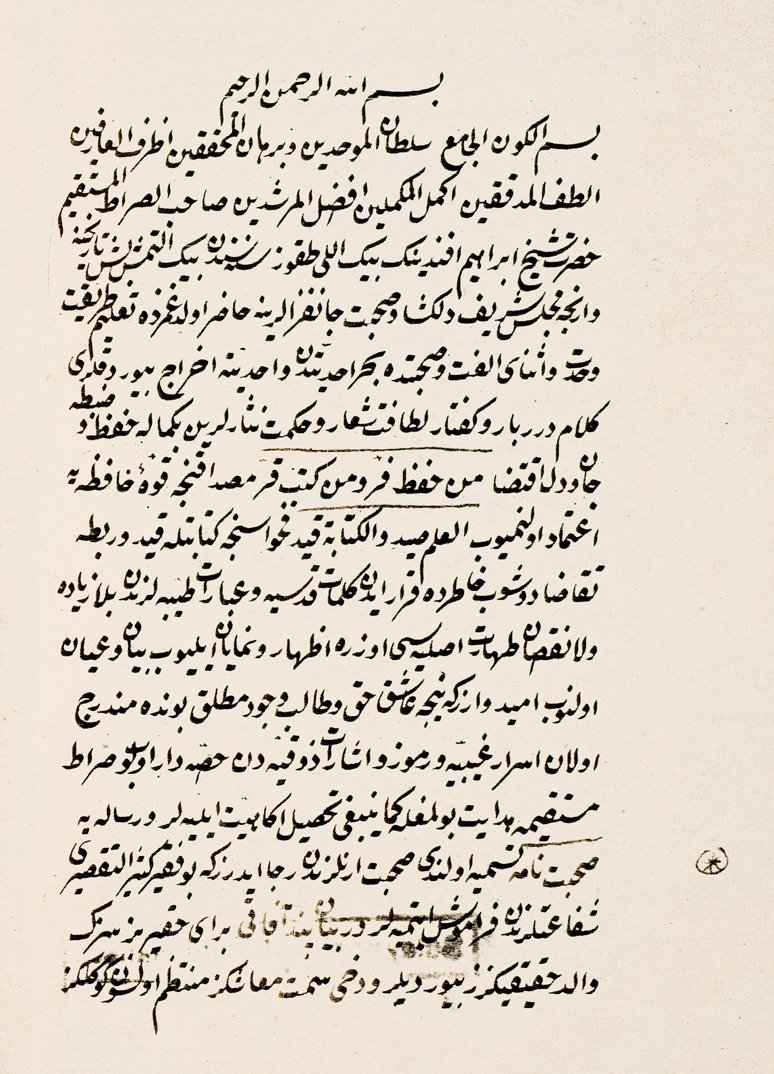 بسم الله الرحمن الرحيم
بسم الكون الجامع سلطان الموحدين وبرهان المحققين اظرف العارفين
الطف المدققين اكمل المكملين افضل المرشدين صاحب الصراط المستقيم
حضرت شيخ ابراهيم افندينك بيك اللى طقوز سنه سندن بيك التمش بش تاريخنه
وانجه مجلس شريف دلكشا وصحبت جانفزالرينه حاضر اولدغمزده تعليم طريقت
وحدت واثناى الفت وصحبتده بحر احديتدن واحديته اخراج بيوردقلرى
كلام درربار وكفتار لطافت شعار وحكمت نثارلرين بكماله حفظ و ضبطه
جان ودل اقتضا من حفظ فر ومن كتب قر مصداقنجه قوۀ حافظه يه
اعتماد اولنميوب العلم صيد والكتابة قيد فحواسنجه كتابتله قيد وربطه
تقاضا دوشوب خاطرده قرار ايدن كلمات قدسيه وعبارات طيبه لرندن بلا زياده
ولا نقصان طهارت اصليه سى اوزره اظهار ونمايان ايليوب بيان وعيان
اولنوب اميد واردركه نيجه عاشق حق وطالب وجود مطلق بونده مندرج
اولان اسرار غيبيه ورموز واشارات ذوقيه دن حصه دار اولوب صراط
مستقيمه هدايت بولمغله كما ينبغى تحصيل اكاهيت ايليه لر ورساله يه
صحبت نامه تسميه اولندى صحبت ارنلرندن رجا ايدرزكه بو فقير كثير التقصيرى
شفاعتلرندن فراموش ايتميه لر در بيان پند آفاقى براى حقير بز سزك
والد حقيقيكزز بيورديلر ودخى سمت معاشكز منتظم اولسون كوكلكز